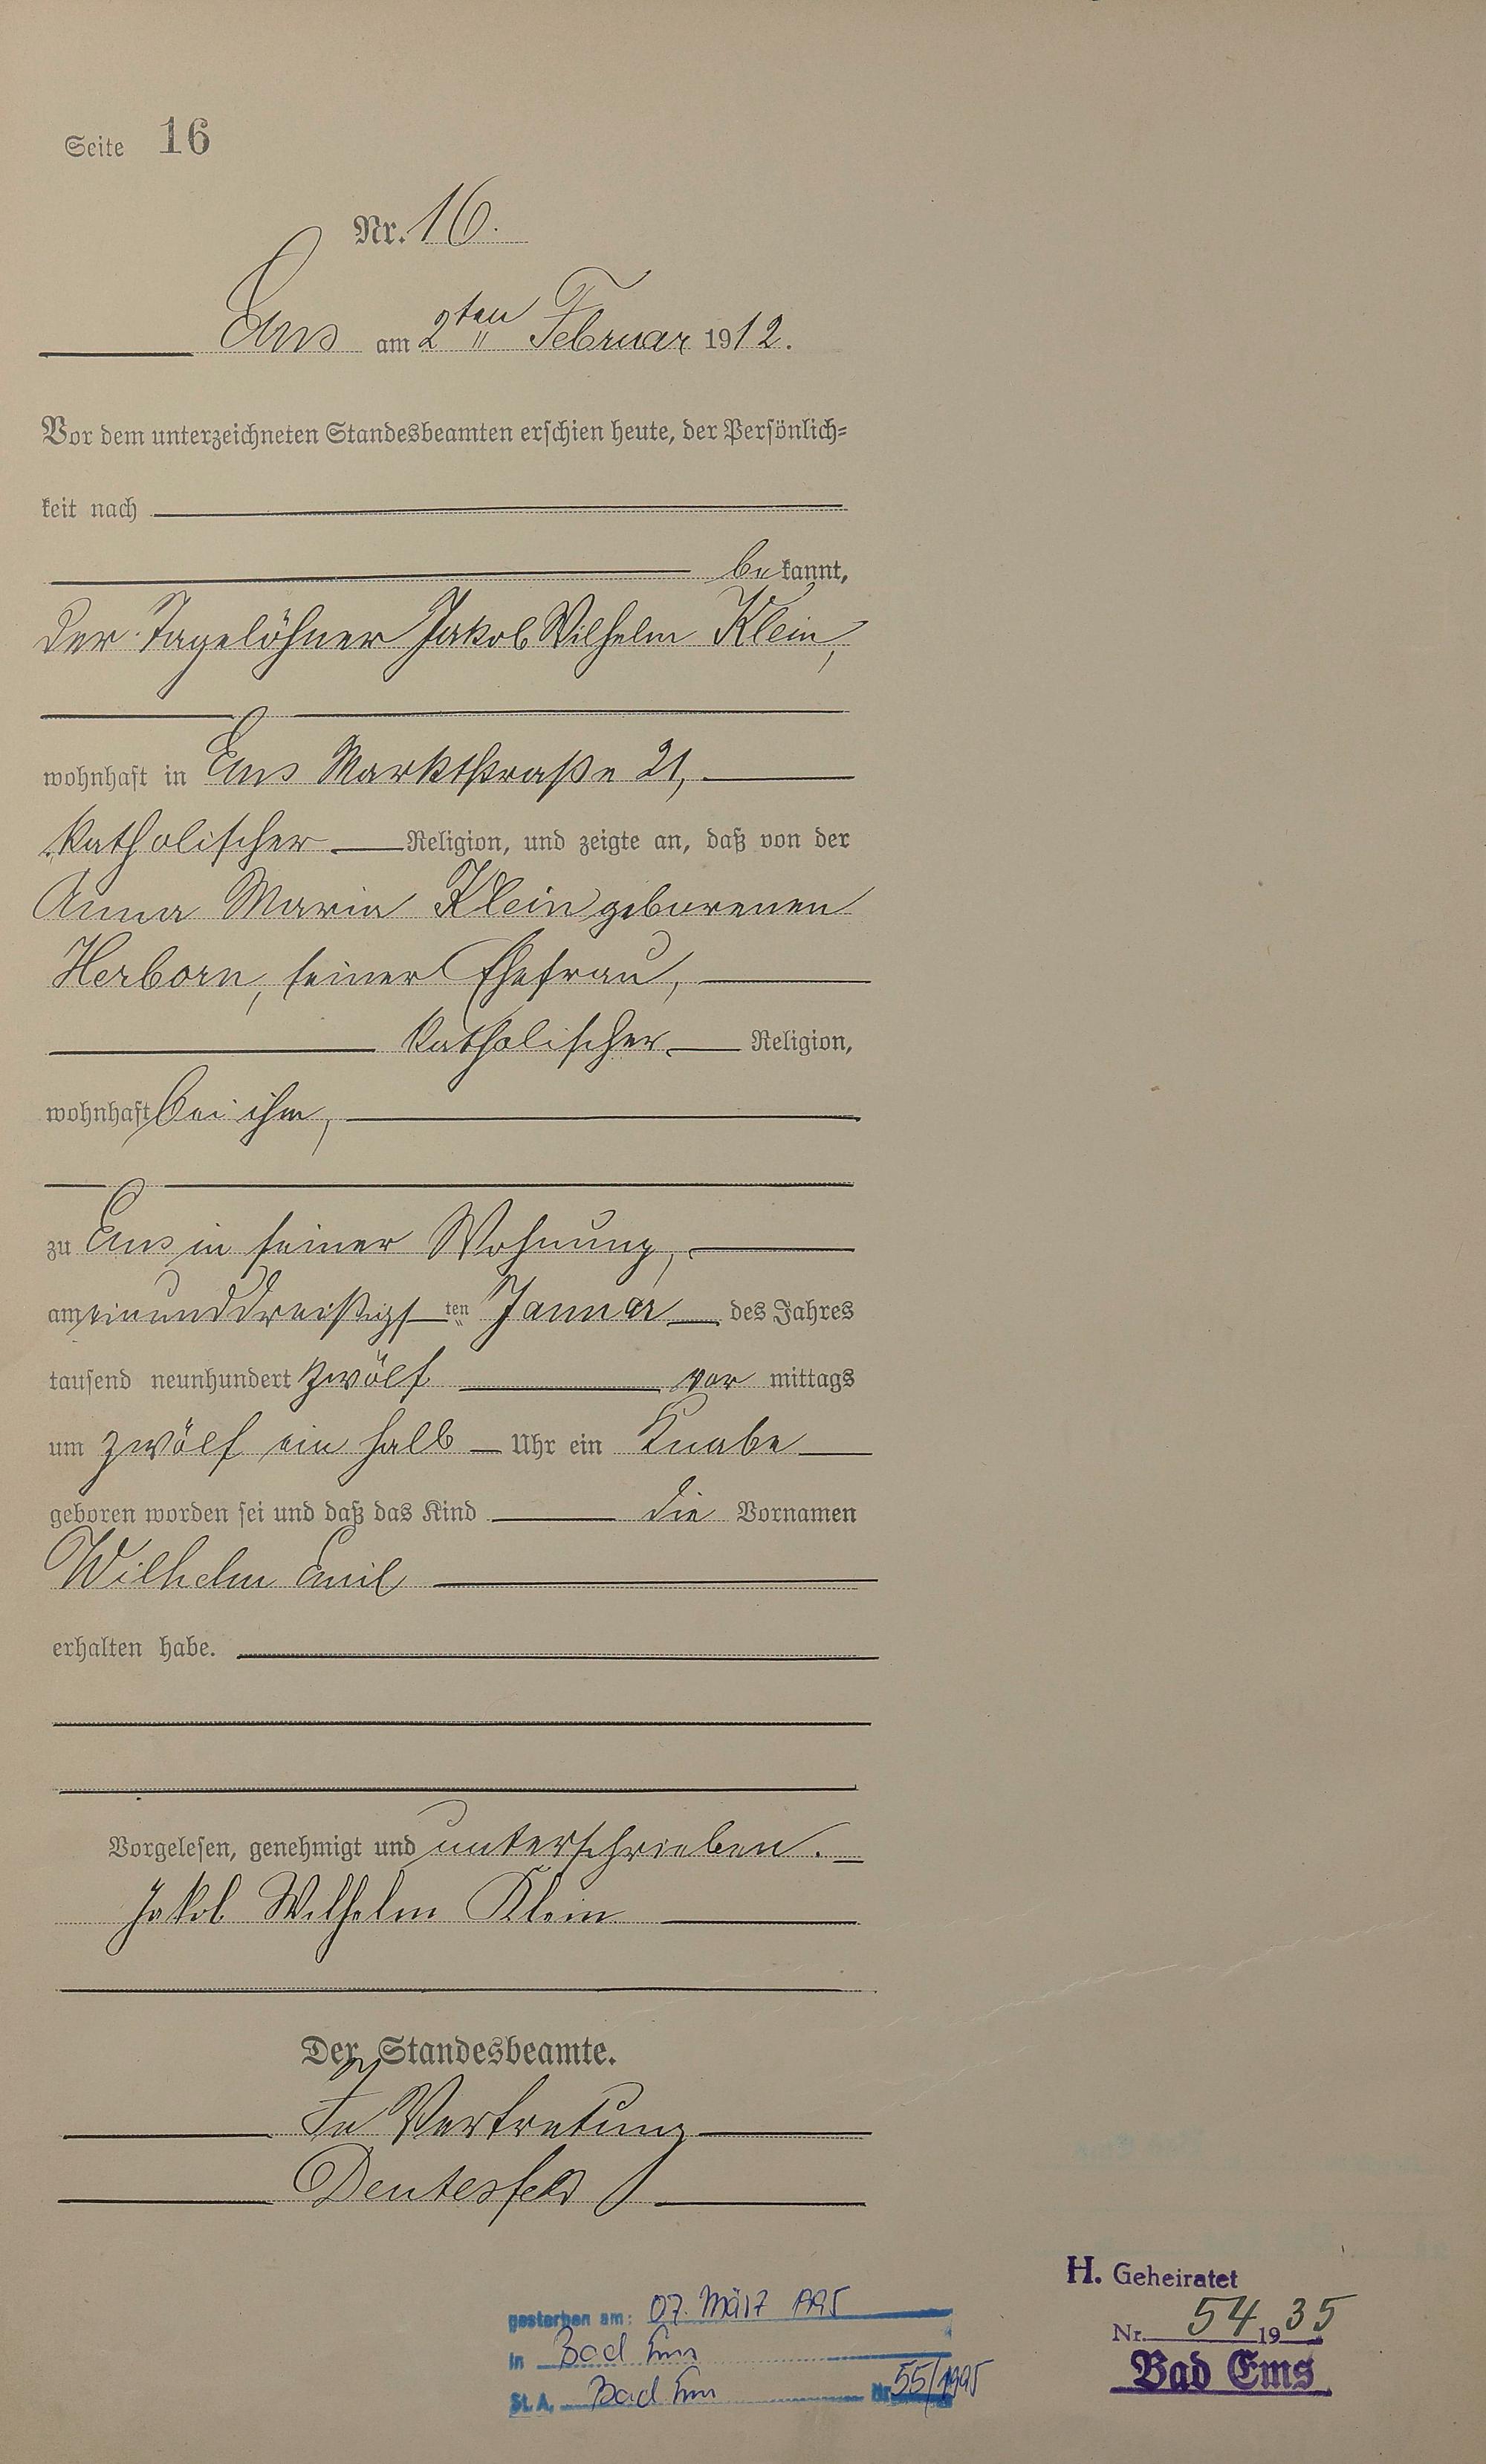 Seite 16
Nr. 16.
Ems am 2ten Februar 1912.
Vor dem unterzeichneten Standesbeamten erschien heute, der Persönlich=
keit nach
bekannt,
der Tagelöhner Jakob Wilhelm Klein,
wohnhaft in Ems Marktstraße 21,
katholischer Religion, und zeigte an, daß von der
Anna Maria Klein geborenen
Herborn, seiner Ehefrau,
katholischer Religion,
wohnhaft bei ihm,
zu Ems in seiner Wohnung,
am einunddreißigsten Januar des Jahres
tausend neunhundert zwölf vor mittags
um zwölf ein halb Uhr ein Knabe
geboren worden sei und daß das Kind die Vornamen
Wilhelm Emil
erhalten habe.
Vorgelesen, genehmigt und unterschrieben.
Jakob Wilhelm Klein
Der Standesbeamte.
In Vertretung
Deutesfeld
H. Geheiratet
Nr. 54 1935
Bad Ems
gestorben am: 07. März 1995
in Bad Ems
St. A. Bad Ems Nr. 55/1995